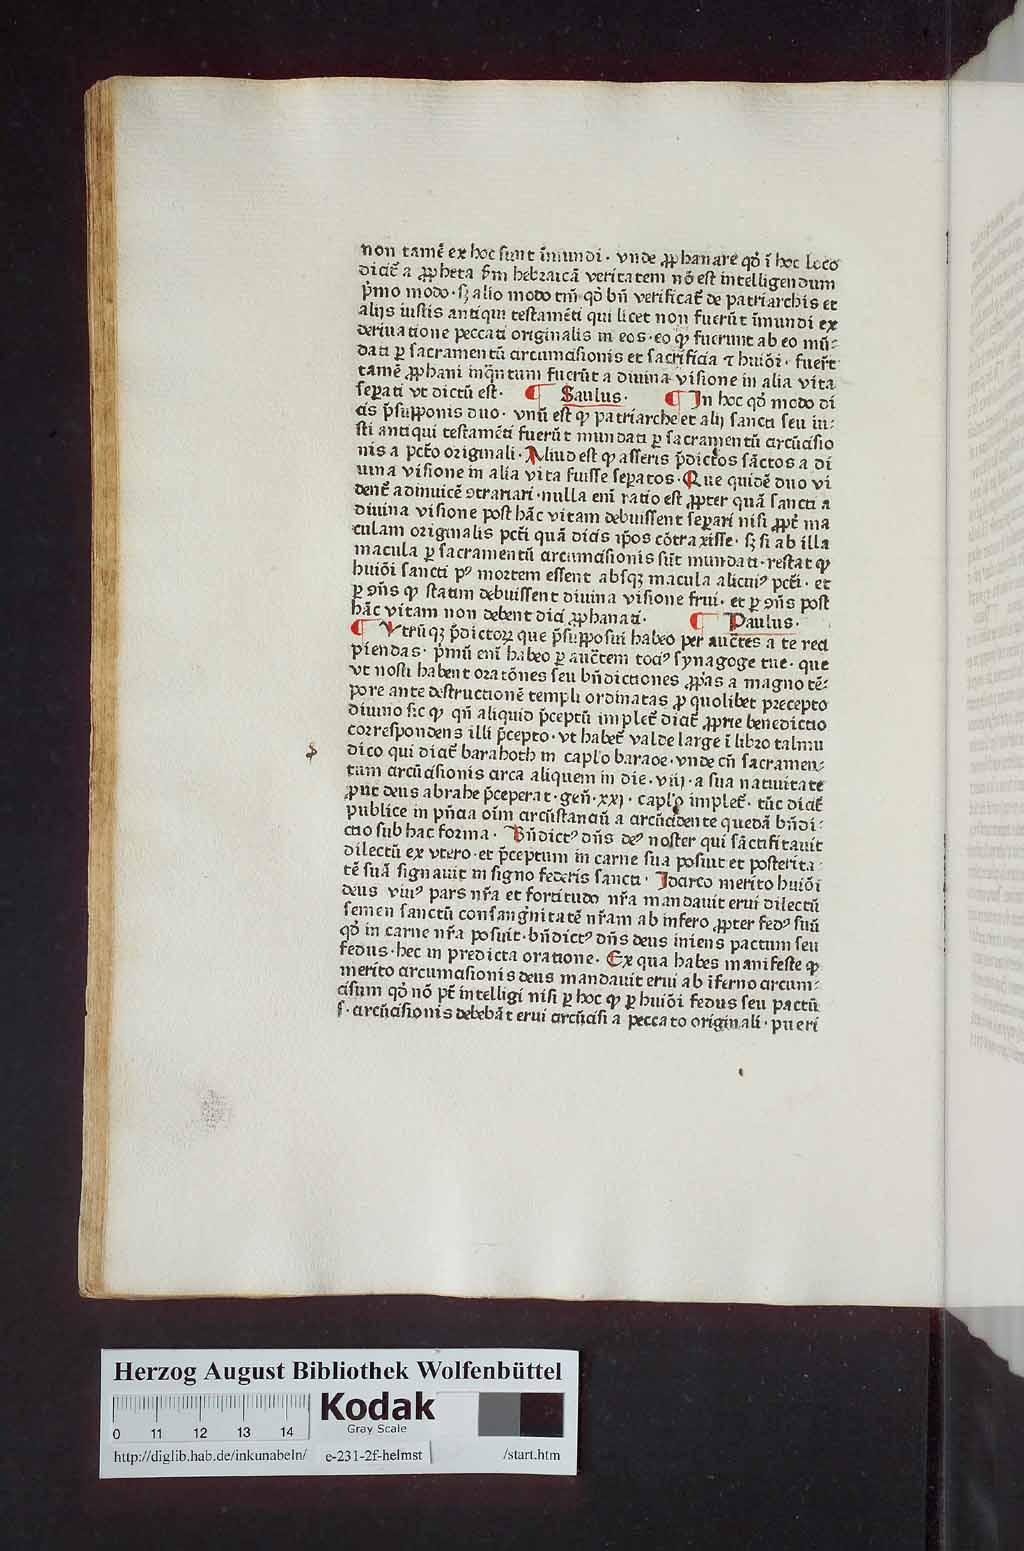 non tamẽ ex hoc sunt ĩmundi · vnde ꝓphanare qđ ĩ hoc loco
dicit̃ a ꝓpheta s̃m hebraicã veritatem nõ est intelligendum
p̃mo modo · sꝫ alio modo tm̃ qđ bñ verificat̃ de patriarchis et
alijs iustis antiqui testamẽti qui licet non fuerũt ĩmundi ex
deriuatione peccati originalis in eos · eo ꝙ fuerunt ab eo mũ⸗
dati ꝑ sacramentũ circumcisionis et sacrificia ⁊ huiõi · fuer̃t
tamẽ ꝓphani inq̃ntum fuerũt a diuina visione in alia vita
seꝑati vt dictũ est · ¶ Saulus · ¶ In hoc qđ modo di
cis p̃supponis duo · vnũ est ꝙ patriarche et alij sancti seu iu⸗
sti antiqui testamẽti fuerũt mundati ꝑ sacramentũ circũcisio
nis a pctõ originali · Aliud est ꝙ asseris p̃dictos sãctos a di
uina visione in alia vita fuisse seꝑatos · Que quidẽ duo vi
dent̃ adinuicẽ ꝯtrariari · nulla eni ratio est ꝓpter quã sancti a
diuina visione post hãc vitam debuissent seꝑari nisi ꝓpt̃ ma
culam originalis pcti quã dicis ip̃os cõtraxisse · sꝫ si ab illa
macula ꝑ sacramentũ circumcisionis sũt mundati · restat ꝙ
huiõi sancti pꝰ mortem essent absqꝫ macula alicuiꝰ pcti · et
ꝑ ꝯñs ꝙ statim debuissent diuina visione frui · et ꝑ ꝯñs post
hãc vitam non debent dici ꝓphanati · ¶ Paulus ·
¶ Vtrũqꝫ p̃dictoꝝ que p̃supposui habeo per auct̃es a te reci
piendas · p̃mũ eni habeo ꝑ auct̃em tociꝰ synagoge tue · que
vt nosti habent oratõnes seu bñdictiones ꝓp̃as a magno tẽ⸗
pore ante destructionẽ templi ordinatas ꝓ quolibet precepto
diuino sic ꝙ qñ aliquid p̃ceptũ implet̃ dicit̃ ꝓprie benedictio
correspondens illi p̃cepto · vt habet̃ valde large ĩ libro talmu
dico qui dicit̃ barahoth in cap̃lo baraoe · vnde cũ sacramen⸗
tum circũcisionis circa aliquem in die · viij · a sua natiuitate
ꝓut deus abrahe p̃ceperat · geñ · xxj · cap̃lo implet̃ · tũc dicit̃
publice in p̃ñcia oĩm circũstanciũ a circũcidente quedã bñdi⸗
ctio sub hac forma · Bñdictꝰ dñs deꝰ noster qui sãctificauit
dilectũ ex vtero · et p̃ceptum in carne sua posuit et posterita⸗
tẽ suã signauit in signo federis sancti · Idcirco merito huiõi
deus viuꝰ pars nr̃a et fortitudo nr̃a mandauit erui dilectũ
semen sanctũ consangĩnitatẽ nr̃am ab infero ꝓpter fedꝰ suũ
qđ in carne nr̃a posuit · bñdictꝰ dñs deus iniens pactum seu
fedus · hec in predicta oratione · Ex qua habes manifeste ꝙ
merito circumcisionis deus mandauit erui ab ĩferno circum⸗
cisum qđ nõ pt̃ intelligi nisi ꝑ hoc ꝙ ꝑ huiõi fedus seu pactũ
s · circũcisionis debebãt erui circũcisi a peccato originali · pueri
Herzog August Bibliothek Wolfenbüttel
0 11 12 13 14
Kodak
Gray Scale
http://diglib.hab.de/inkunabeln/ e-231-2f-helmst /start.htm